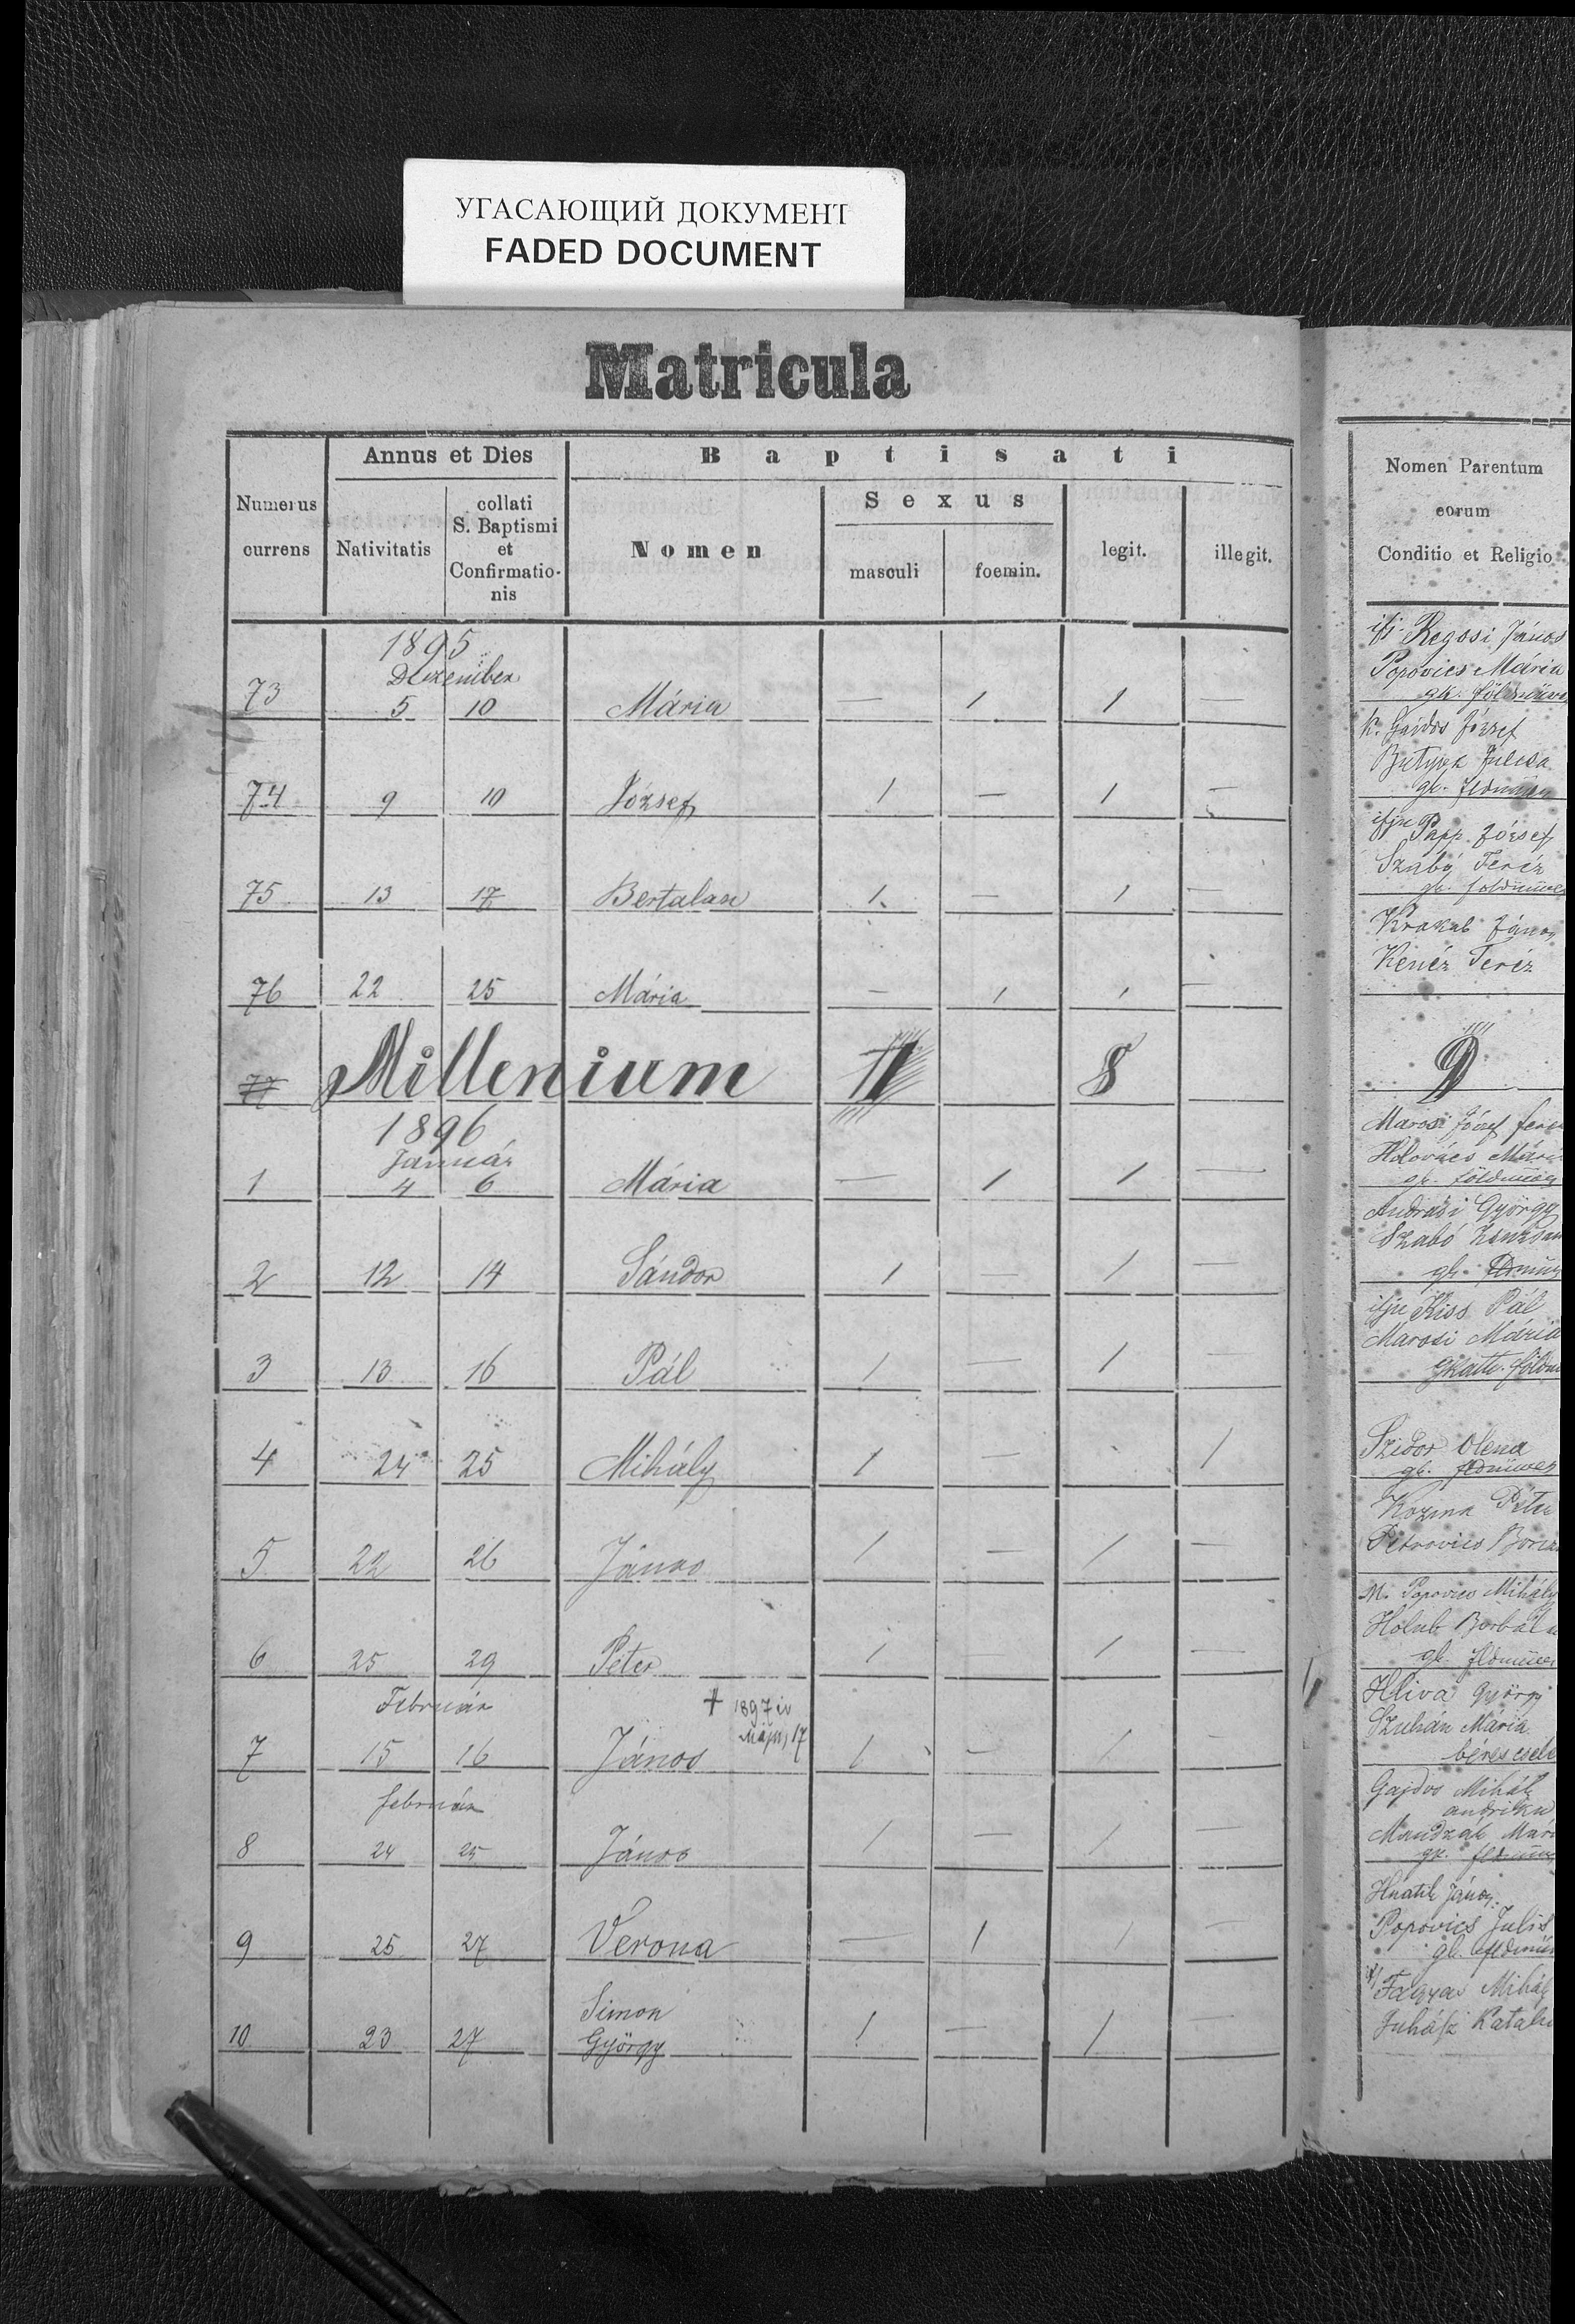 УГАСАЮЩИЙ ДОКУМЕНТ
FADED DOCUMENT
Matricula
Numerus currens
Annus et Dies
Nativitatis
collati S. Baptismi et Confirmatio-nis
Baptisati
Nomen
Sexus
masculi
foemin.
legit.
illegit.
Nomen Parentum
eorum
Conditio et Religio
1895
December
73 5 10 Mária — 1 1 —
ifj. Regosi János
Popovics Mária
gk. földmüve
74 9 10 József 1 — 1 —
k. Gajdos József
Julcsa
75 13 17 Bertalan 1 — 1 —
ifju Papp József
Szabó Teréz
gk. földmüve
76 22 25 Mária — 1 1 —
János
Kenéz Teréz
77 Millenium 8 —
1896
Január
1 4 6 Mária — 1 1 —
Marosi József
Holovács Mári
gk. földmüv
2 12 14 Sándor 1 — 1 —
Andrási György
Szabó
3 13 16 Pál 1 — 1 —
ifju Kiss Pál
Marosi Mária
gkath. földm
4 24 25 Mihály 1 — 1
Szidor Olena
gk. fldmüves
5 22 26 János 1 — 1 —
Kozma Péter
Petrovics
6 25 29 Péter 1 — 1 —
M. Popovics Mihály
Holub Borbála
gk. fldmüves
Február
7 15 16 János 1 — 1 —
+ 1897 év
május 17
Hliva György
Szuhán Mária
béres csele
február
8 24 25 János 1 — 1 —
Gajdos Mihály
Mári
9 25 27 Verona — 1 1 —
Hnatik János
Popovics Julis
10 23 27 Simon
György 1 — 1 —
Mihály
Juhász Katali